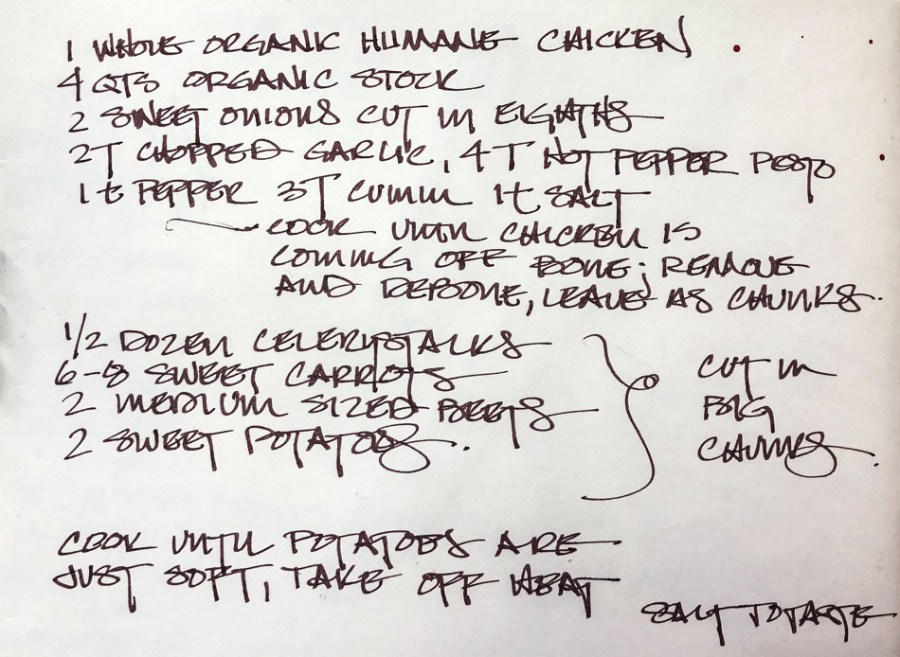 1 WHOLE ORGANIC HUMANE CHICKEN
4 QTS ORGANIC STOCK
2 SWEET ONIONS CUT IN EIGHTHS
2T CHOPPED GARLIC, 4T HOT PEPPER PESTO
1t PEPPER 3T CUMIN 1t SALT
COOK UNTIL CHICKEN IS
COMING OFF BONE; REMOVE
AND DEBONE, LEAVE AS CHUNKS.
1/2 DOZEN CELERY STALKS
6-8 SWEET CARROTS
2 MEDIUM SIZED BEETS
2 SWEET POTATOES.
CUT IN
BIG
CHUNKS.
COOK UNTIL POTATOES ARE
JUST SOFT, TAKE OFF HEAT
SALT TO TASTE